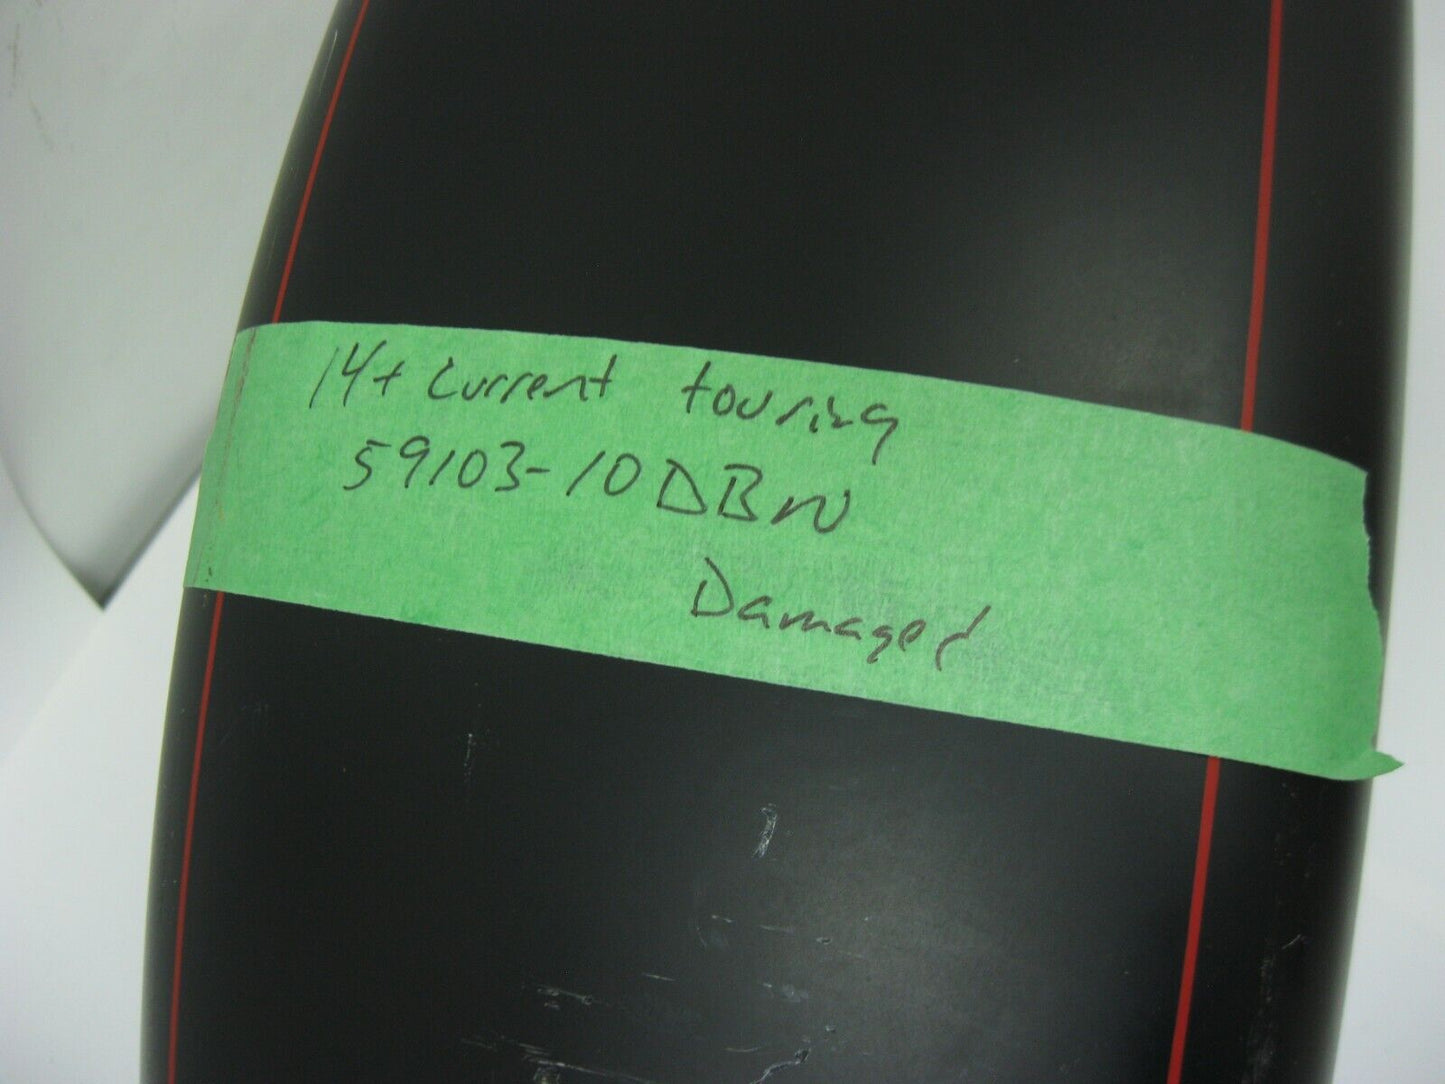 14+ current touring
59103-10DBW
Damaged